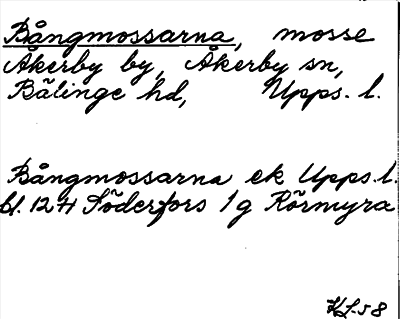 Bångmossarna, mosse
Åkerby by, Åkerby sn,
Bälinge hd, Upps. l.
Bångmossarna ek Upps. l.
bl. 12 H Söderfors 1 g Rörmyra
HL-58